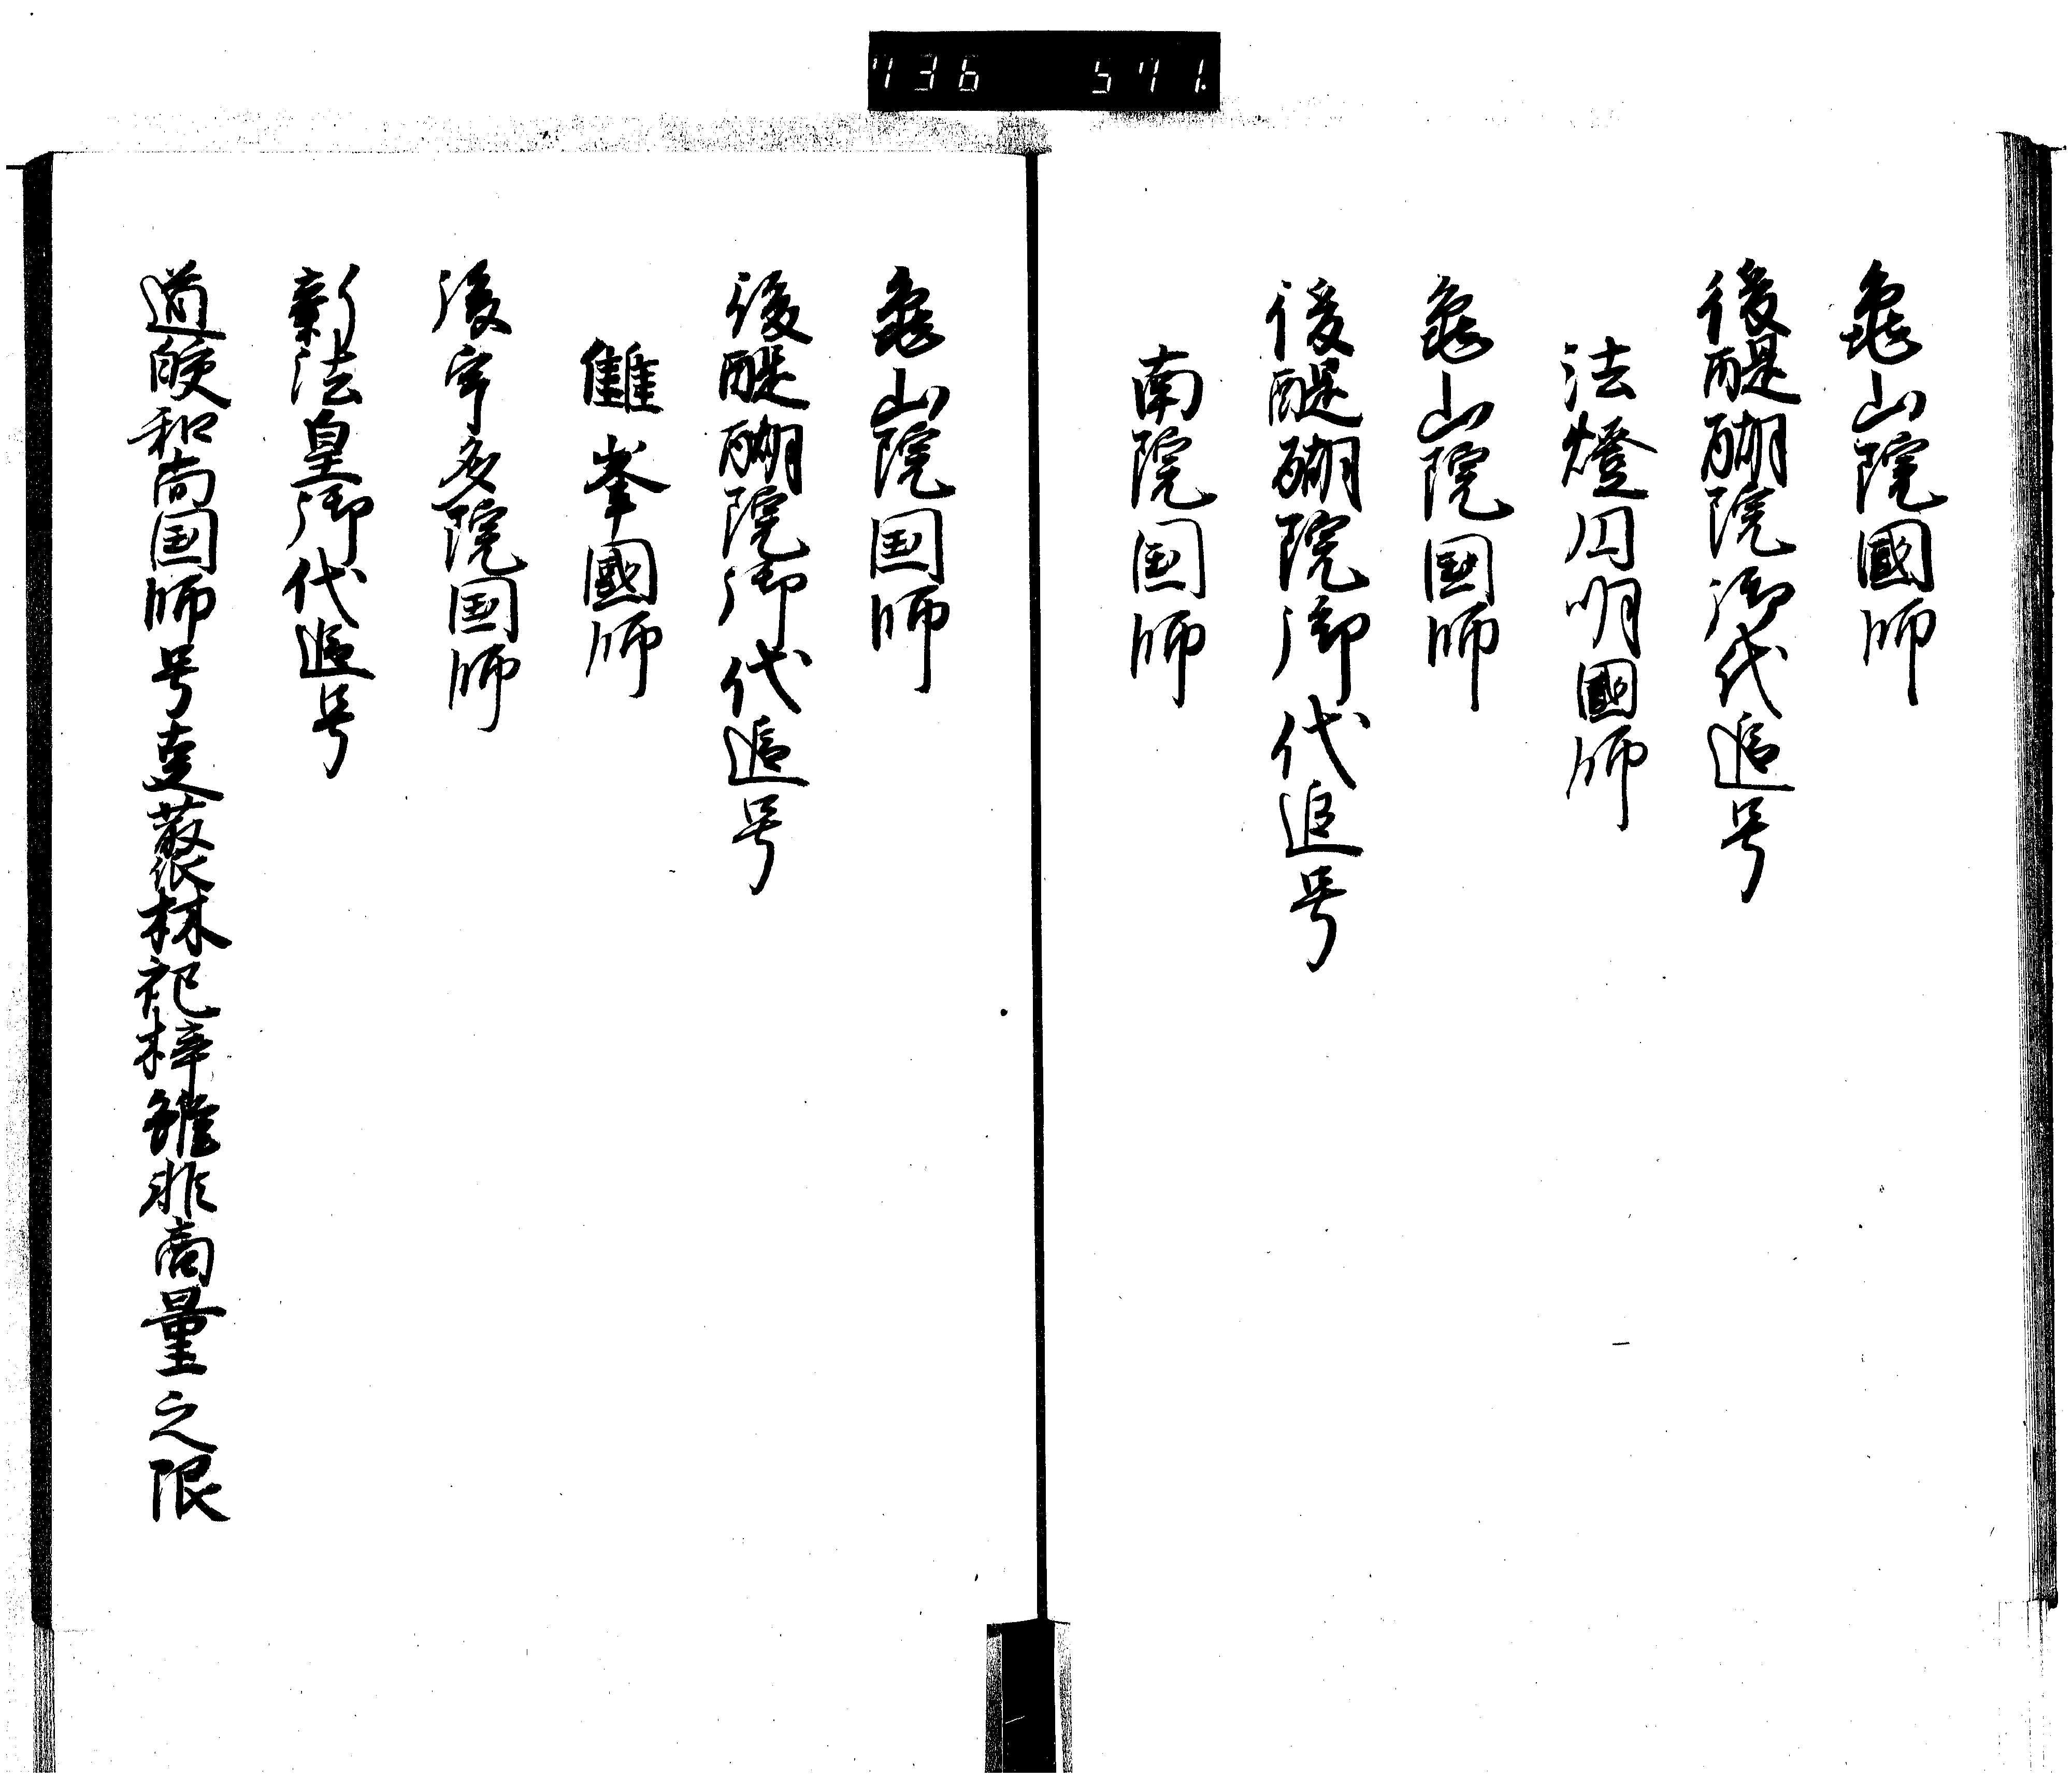 736 571.
亀山院國師
後醍醐院御代追号
法燈円明國師
亀山院国師
後醍醐院御代追号
南院国師
亀山院国師
後醍醐院御代追号
雙峯國師
後宇多院国師
新法皇御代追号
道皎和尚国師号叢林杞梓雖非商量之限